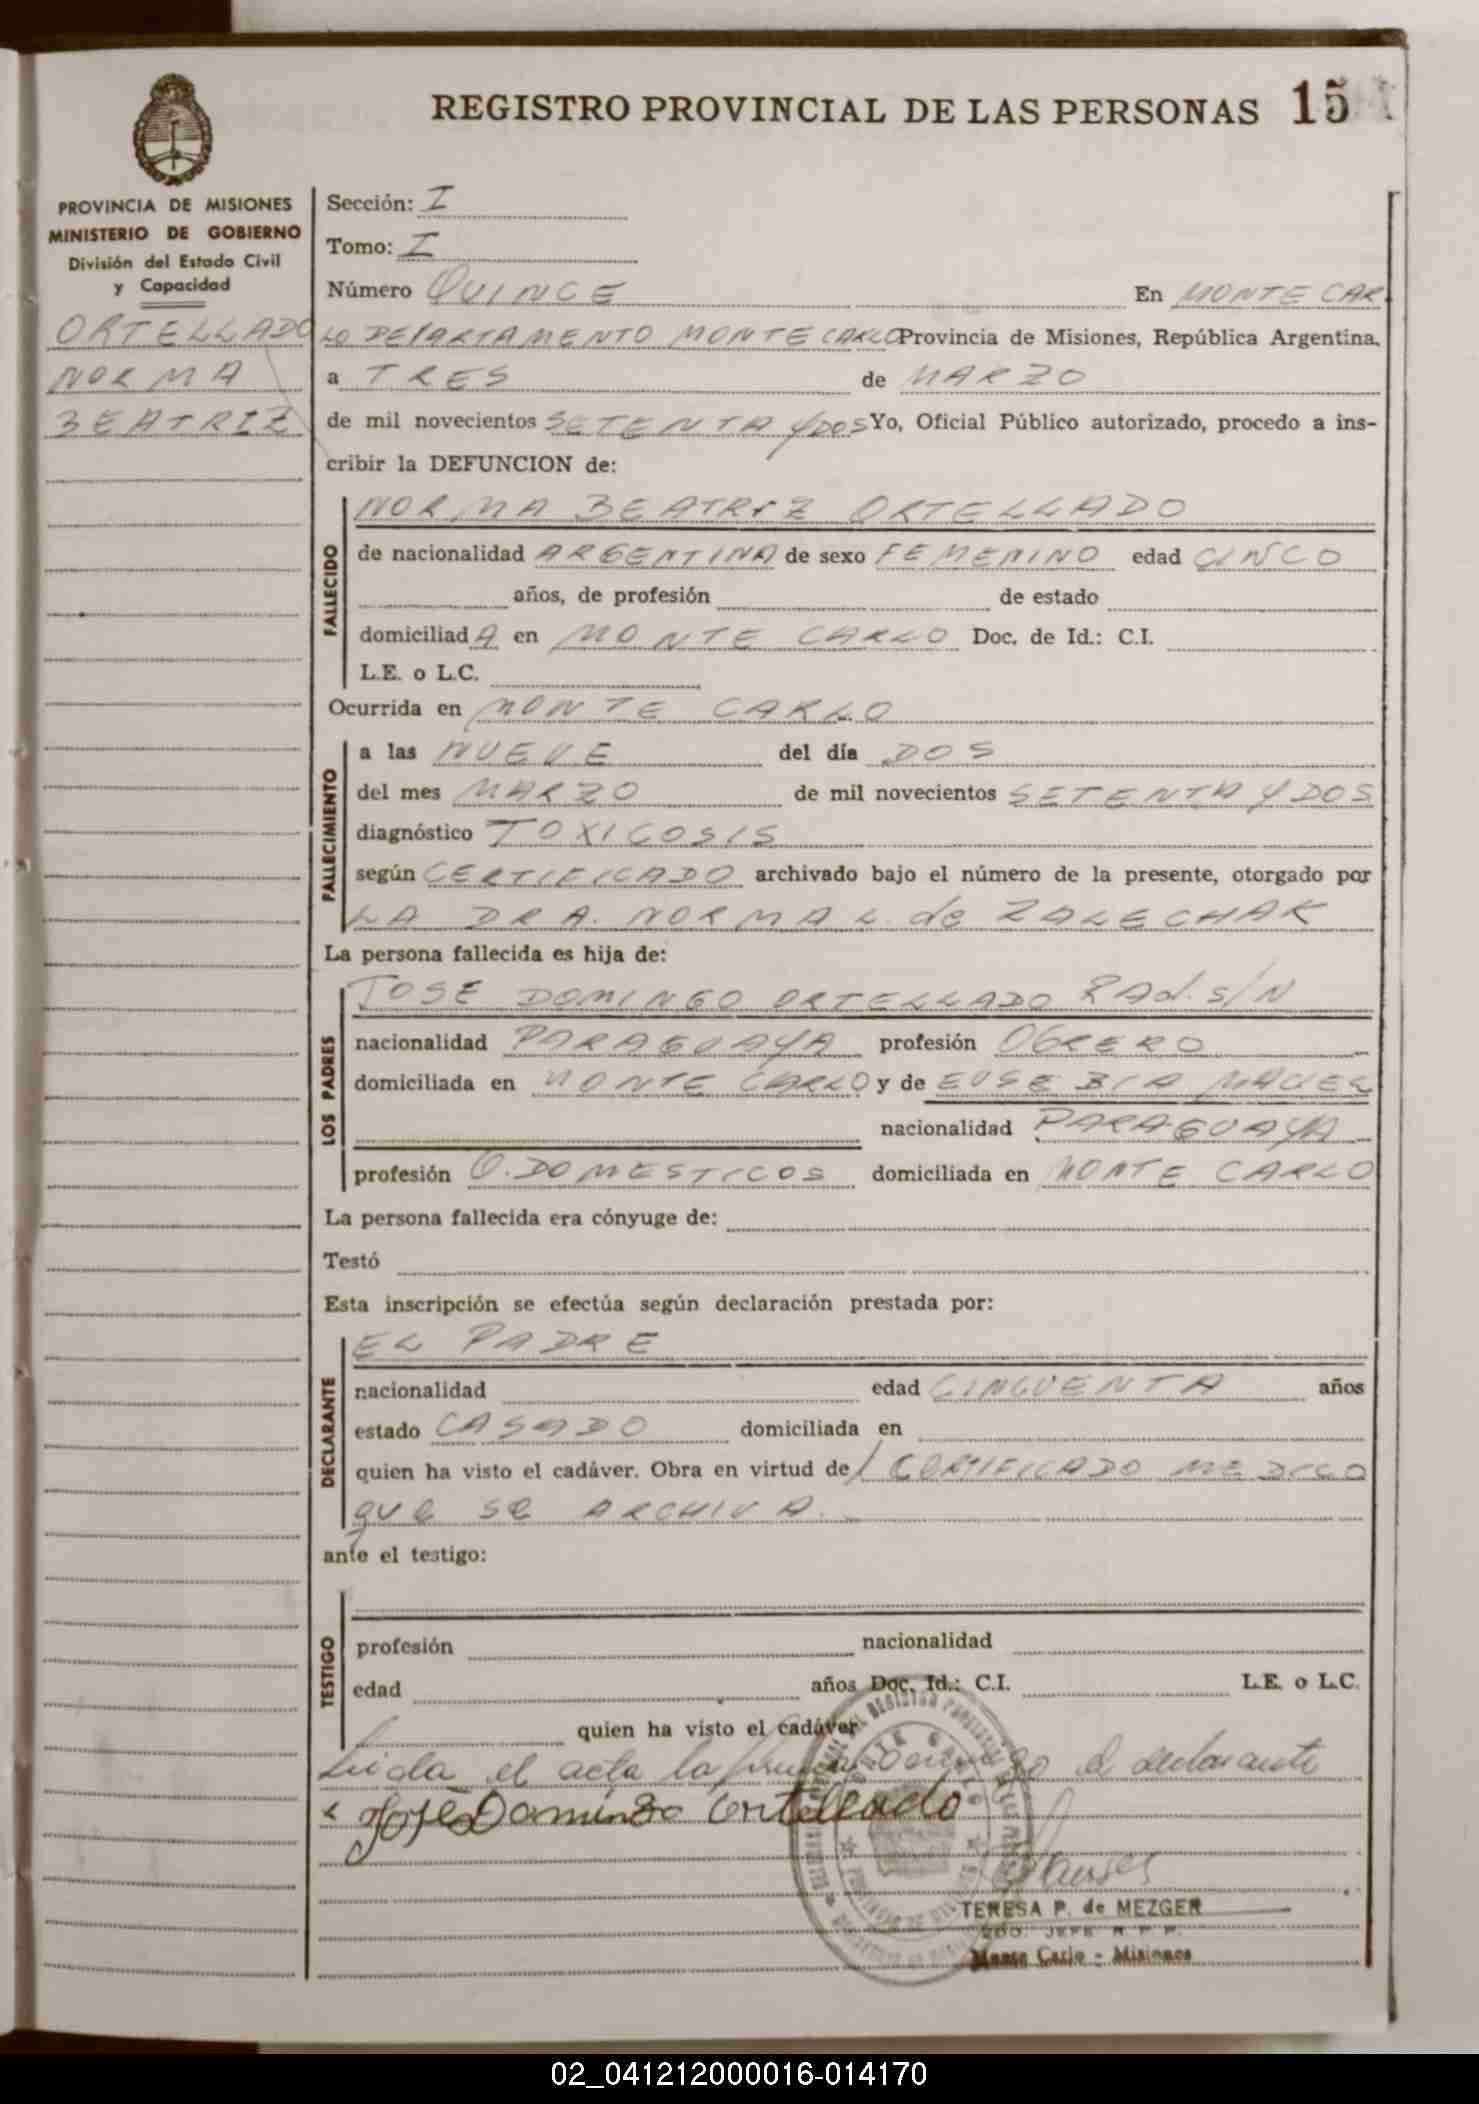 REGISTRO PROVINCIAL DE LAS PERSONAS 15
PROVINCIA DE MISIONES
MINISTERIO DE GOBIERNO
División del Estado Civil
y Capacidad
ORTELLADO
NORMA
BEATRIZ
Sección: I
Tomo: I
Número QUINCE En MONTE CAR
LO DEPARTAMENTO MONTE CARLO Provincia de Misiones, República Argentina,
a TRES de MARZO
de mil novecientos SETENTA Y DOS Yo, Oficial Público autorizado, procedo a ins-
cribir la DEFUNCION de:
FALLECIDO
NORMA BEATRIZ ORTELLADO
de nacionalidad ARGENTINA de sexo FEMENINO edad CINCO
años, de profesión de estado
domiciliad A en MONTE CARLO Doc. de Id.: C.I.
L.E. o L.C.
Ocurrida en MONTE CARLO
FALLECIMIENTO
a las NUEVE del día DOS
del mes MARZO de mil novecientos SETENTA Y DOS
diagnóstico TOXICOSIS
según CERTIFICADO archivado bajo el número de la presente, otorgado por
LA DRA. NORMA L. de ZALECHAK
La persona fallecida es hija de:
LOS PADRES
JOSE DOMINGO ORTELLADO RAd. S/N
nacionalidad PARAGUAYA profesión OBRERO
domiciliada en MONTE CARLO y de EUSEBIA MACIEL
nacionalidad PARAGUAYA
profesión Q. DOMESTICOS domiciliada en MONTE CARLO
La persona fallecida era cónyuge de:
Testó
Esta inscripción se efectúa según declaración prestada por:
DECLARANTE
EL PADRE
nacionalidad edad CINCUENTA años
estado CASADO domiciliada en
quien ha visto el cadáver. Obra en virtud de / CERTIFICADO MEDICO
que se ARCHIVA.
ante el testigo:
TESTIGO
profesión nacionalidad
edad años Doc. Id.: C.I. L.E. o L.C.
quien ha visto el cadáver
Leida el acta la firma conmigo el declarante
José Domingo Ortellado
TERESA P. de MEZGER
2DO. JEFE R. P. P.
Monte Carlo - Misiones
02_041212000016-014170